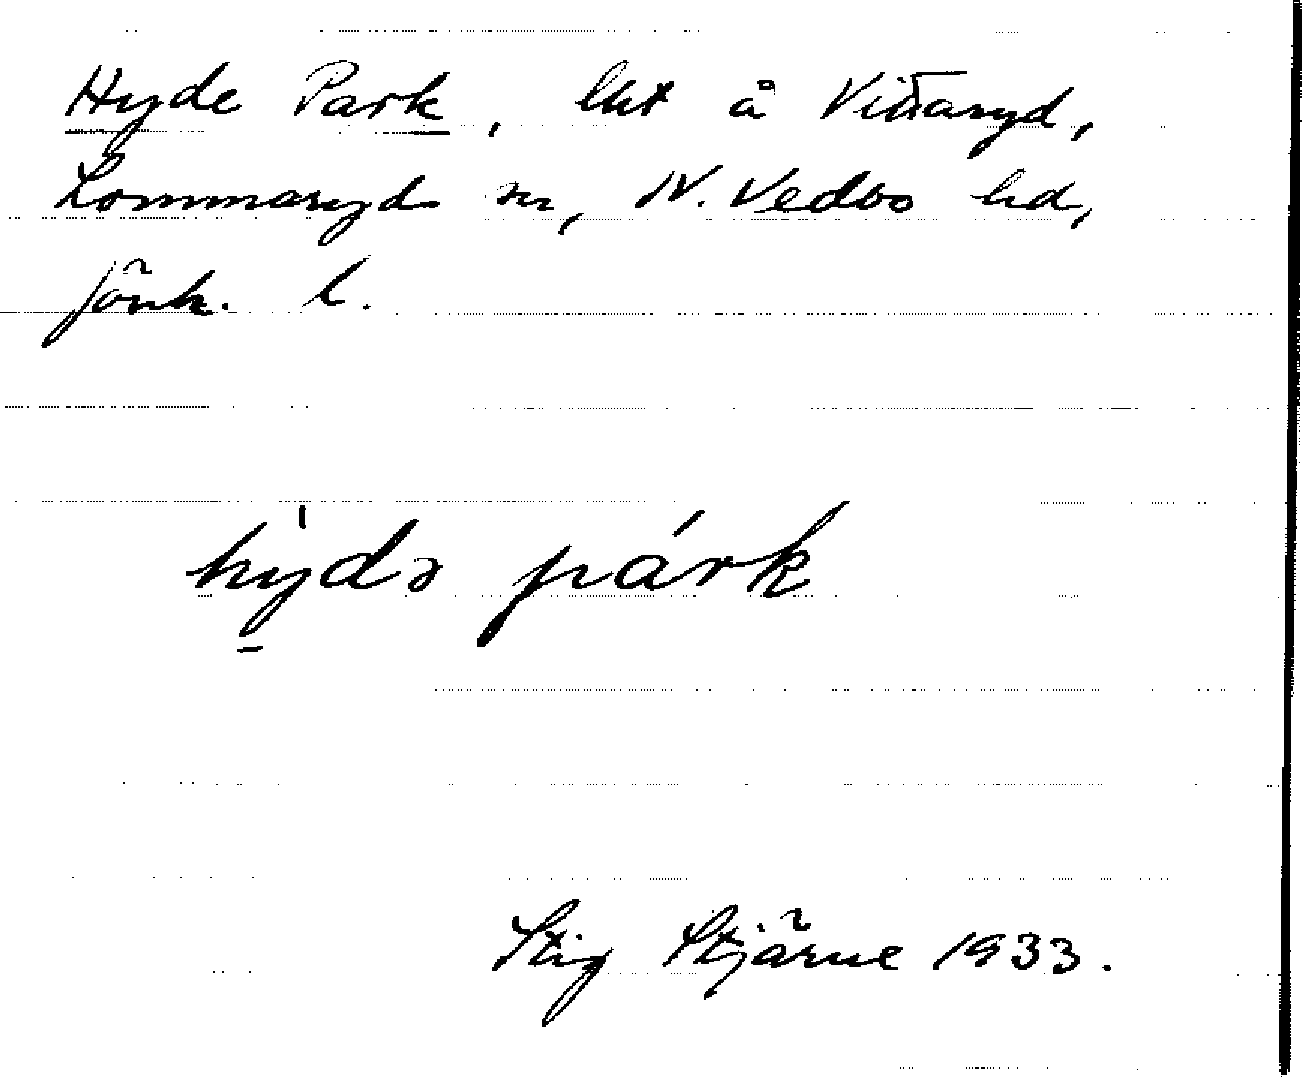 Hyde Park, lht å Vittaryd,
Lommaryds sn, N. Vedbo hd,
Jönk. l.
hy̱̍də párk
Stig Stjärne 1933.